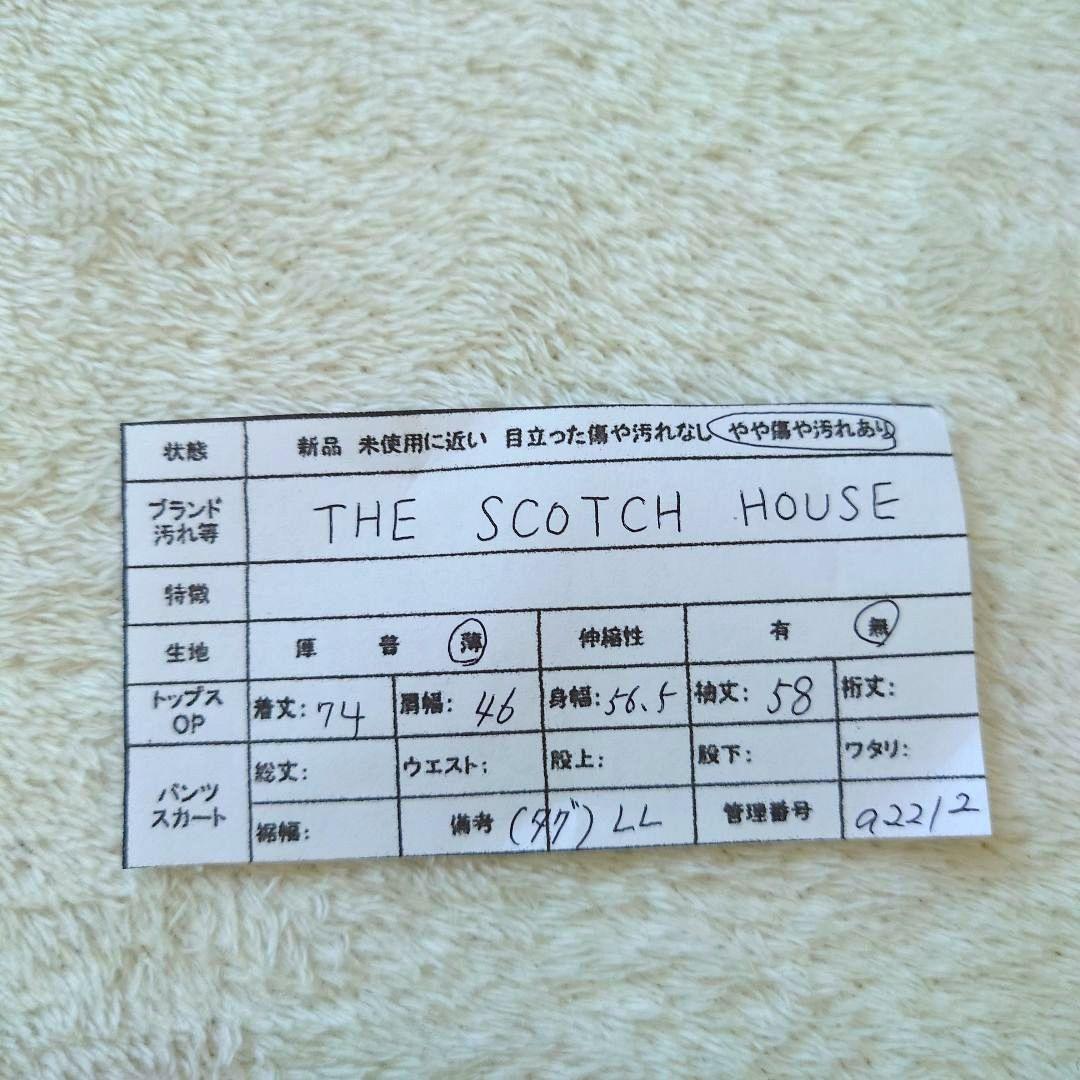 状態 新品 未使用に近い 目立った傷や汚れなし やや傷や汚れあり
ブランド 汚れ等 THE SCOTCH HOUSE
特徴
生地 厚 普 薄 伸縮性 有 無
トップス OP 着丈:74 肩幅:46 身幅:56.5 袖丈:58 裄丈:
パンツ スカート 総丈: ウエスト: 股上: 股下: ワタリ:
裾幅: 備考 (タグ)LL 管理番号 a2212